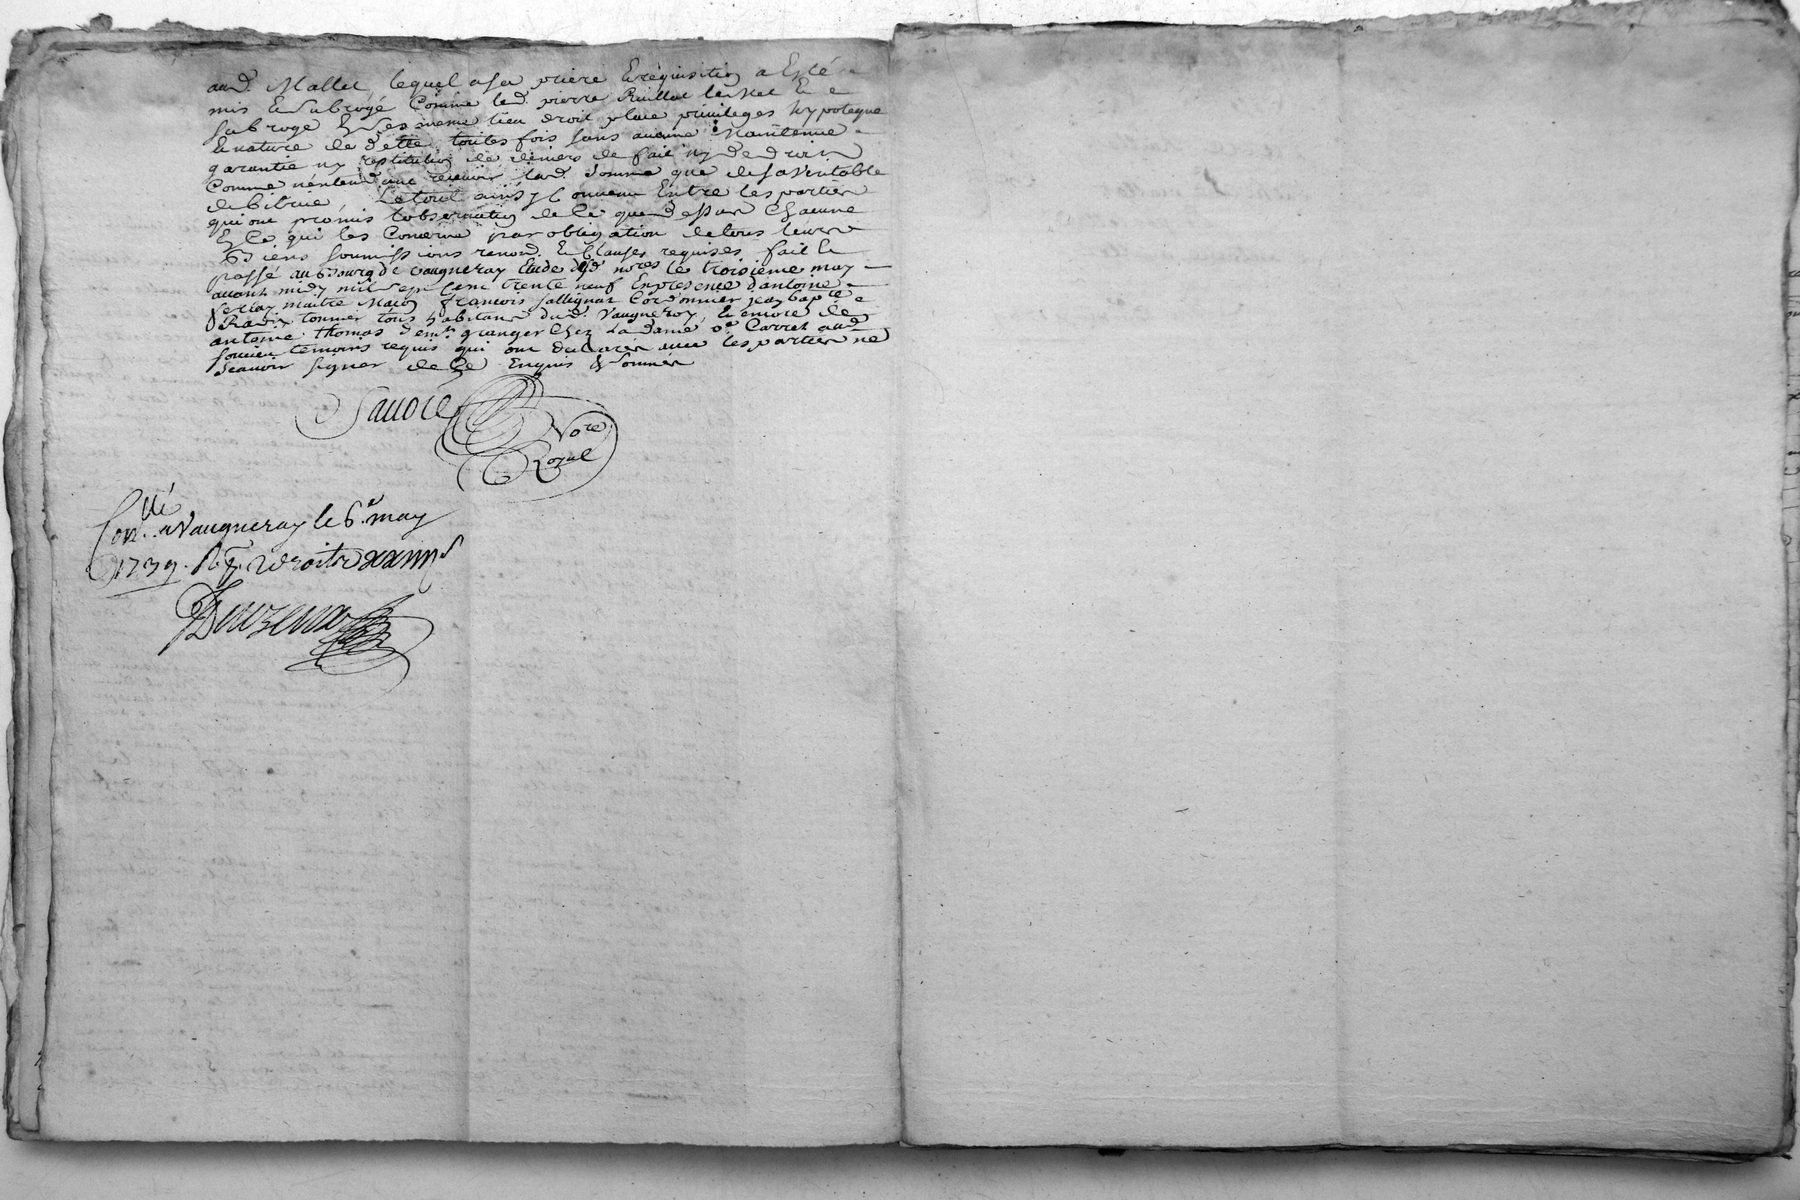 aud. Mallet, lequel a sa priere & requisition a Esté
mis & Subrogé Comme led. pierre Ruillat le Met &
Subroge En ses meme lieu droit place privileges hypoteque
& nature de dette, toutes fois sans aucune Maintenue
garantie ny restitution de deniers de fait ny de droit
Comme n'entendant recevoir lad. Somme que de sa veritable
debitrice, Le tout ainsy Convenu Entre les parties
qui ont promis l'observation de Ce que dessus Chacune
En Ce qui les Concerne par obligation de tous leurs
Biens soumissions renon. & Clauses requises. fait &
passé au Bourg de vaugneray Etude dud. nore le troisieme may
avant midy mil sept Cent trente neuf En presence d'antoine
maitre Macon françois Sallignat Cordonnier jean bapte
Radix tonnier tous habitans dud. Vaugneray, & encore de
antoine thomas demt. granger Chez La dame ve. Carret aud.
temoins requis qui ont declarés avec les parties ne
Scavoir signer de Ce Enquis & Sommés
Savoie
Nore
Royal
Conllé a Vaugneray le 6e. may
1739. R. droits xxiiii s